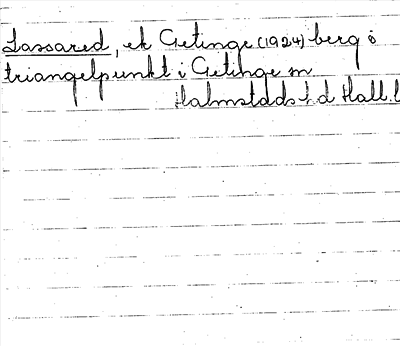 Lassared, ek Getinge (1924) berg o
triangelpunkt i Getinge sn
Halmstads h:d Hall. l